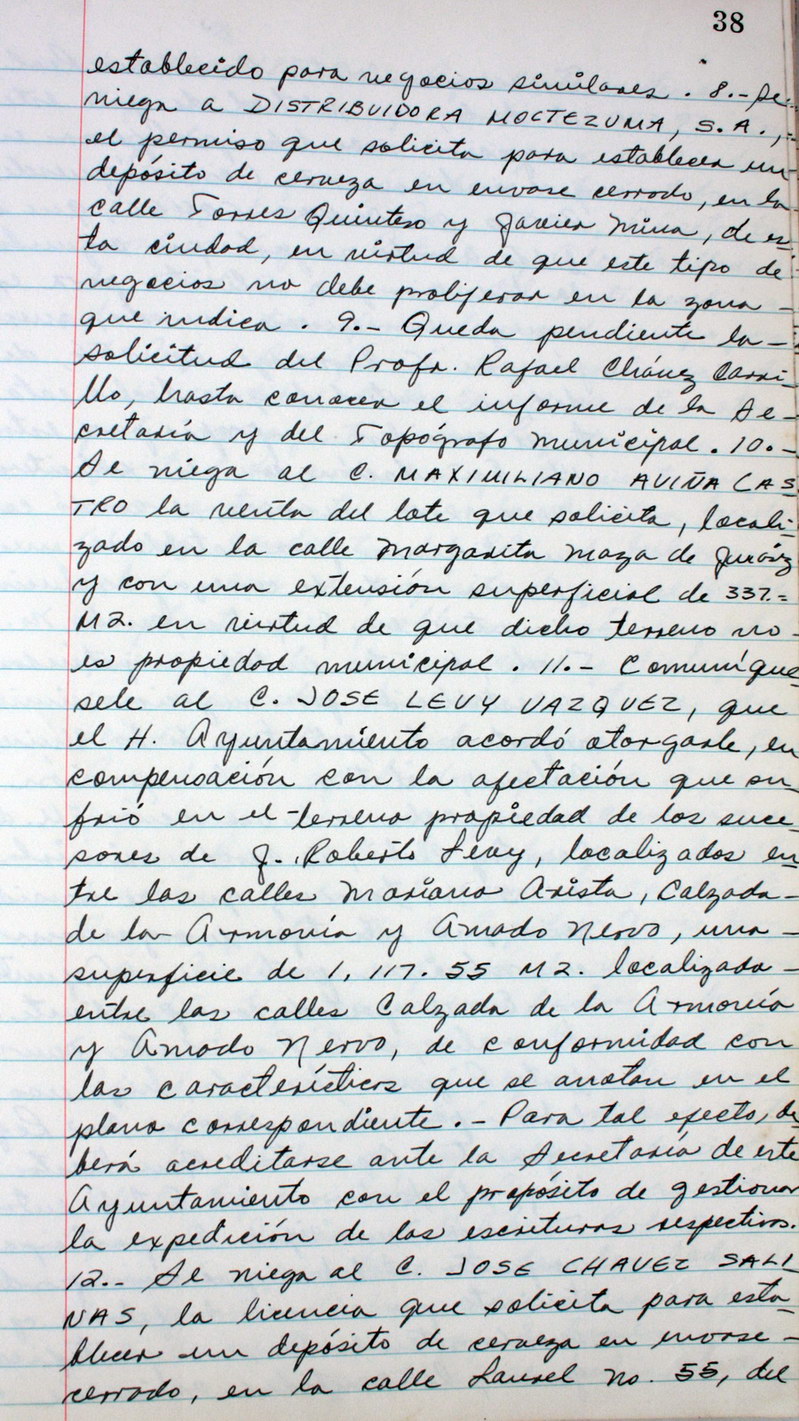 38
establecido para negocios similares . 8.- Se-
niega a DISTRIBUIDORA MOCTEZUMA, S.A.,-
el permiso que solicita para establecer un-
depósito de cerveza en envase cerrado, en la-
calle Torres Quintero y Javier Mina, de es-
ta ciudad, en virtud de que este tipo de-
negocios no debe proliferar en la zona -
que indica . 9.- Queda pendiente la -
solicitud del Profr. Rafael Chávez Carri-
llo, hasta conocer el informe de la Se-
cretaría y del Topógrafo Municipal . 10.-
Se niega al C. MAXIMILIANO AVIÑA CAS
TRO la venta del lote que solicita, locali-
zado en la calle Margarita Maza de Juárez
y con una extensión superficial de 337.=
M2. en virtud de que dicho terreno no -
es propiedad municipal . 11.- Comuníque
sele al C. JOSE LEVY VAZQUEZ, que
el H. Ayuntamiento acordó otorgarle, en
compensación con la afectación que su-
frió en el terreno propiedad de los suce-
sores de J. Roberto Levy, localizados en
tre las calles Mariano Arista, Calzada-
de la Armonía y Amado Nervo, una -
superficie de 1, 117. 55 M2. localizada -
entre las calles Calzada de la Armonía
y Amado Nervo, de conformidad con
las características que se anotan en el
plano correspondiente . - Para tal efecto, de
berá acreditarse ante la Secretaría de este
Ayuntamiento con el propósito de gestionar
la expedición de las escrituras respectivas.
12.- Se niega al C. JOSE CHAVEZ SALI
NAS, la licencia que solicita para esta-
blecer un depósito de cerveza en envase -
cerrado, en la calle Laurel No. 55, del